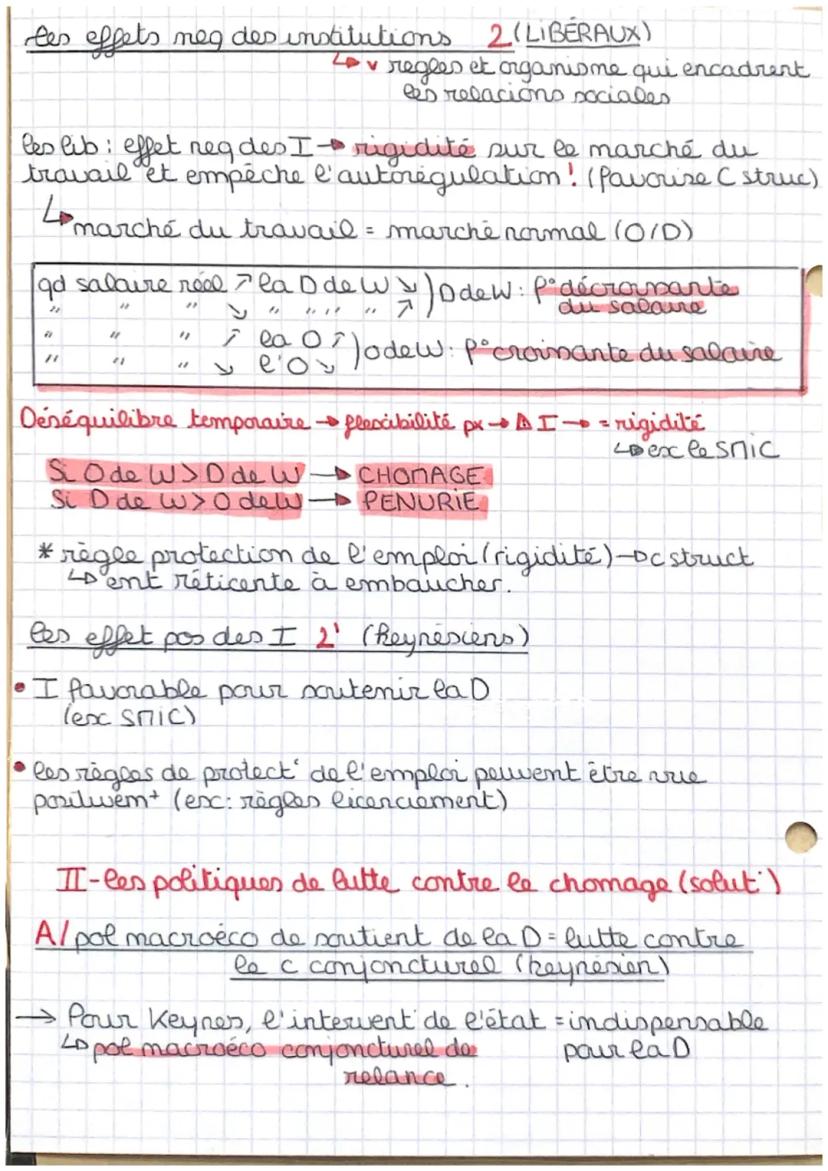 les effets neg des institutions 2 (LIBÉRAUX)
↳ v regles et organisme qui encadrent
les relacions sociales
les lib : effet neg des I → rigidité sur le marché du
travail et empêche l'autorégulation ! (favorise C struc)
↳ marché du travail = marché normal (O/D)
qd salaire réel ↗ la D de W ↘ ) D de W : f° décroissante
" " " ↘ " " " " ↗ du salaire
" " " ↗ la O ↗ ) O de W : f° croissante du salaire
" " " ↘ l'O ↘
Déséquilibre temporaire → flexibilité px → ⚠ I → = rigidité
↳ ex le SMIC
Si O de W > D de W → CHOMAGE
Si D de W > O de W → PENURIE
* règle protection de l'emploi (rigidité) → c struct
↳ ent réticente à embaucher.
les effet pos des I 2' (keynésiens)
• I favorable pour soutenir la D
(ex SMIC)
• les règles de protect° de l'emploi peuvent être vue
positivem^t (ex: règles licenciement)
II - les politiques de lutte contre le chomage (solut°)
A/ pol macroéco de soutient de la D = lutte contre
le c conjoncturel (keynésien)
→ Pour Keynes, l'intervent° de l'état = indispensable
↳ pol macroéco conjoncturel de pour la D
relance.